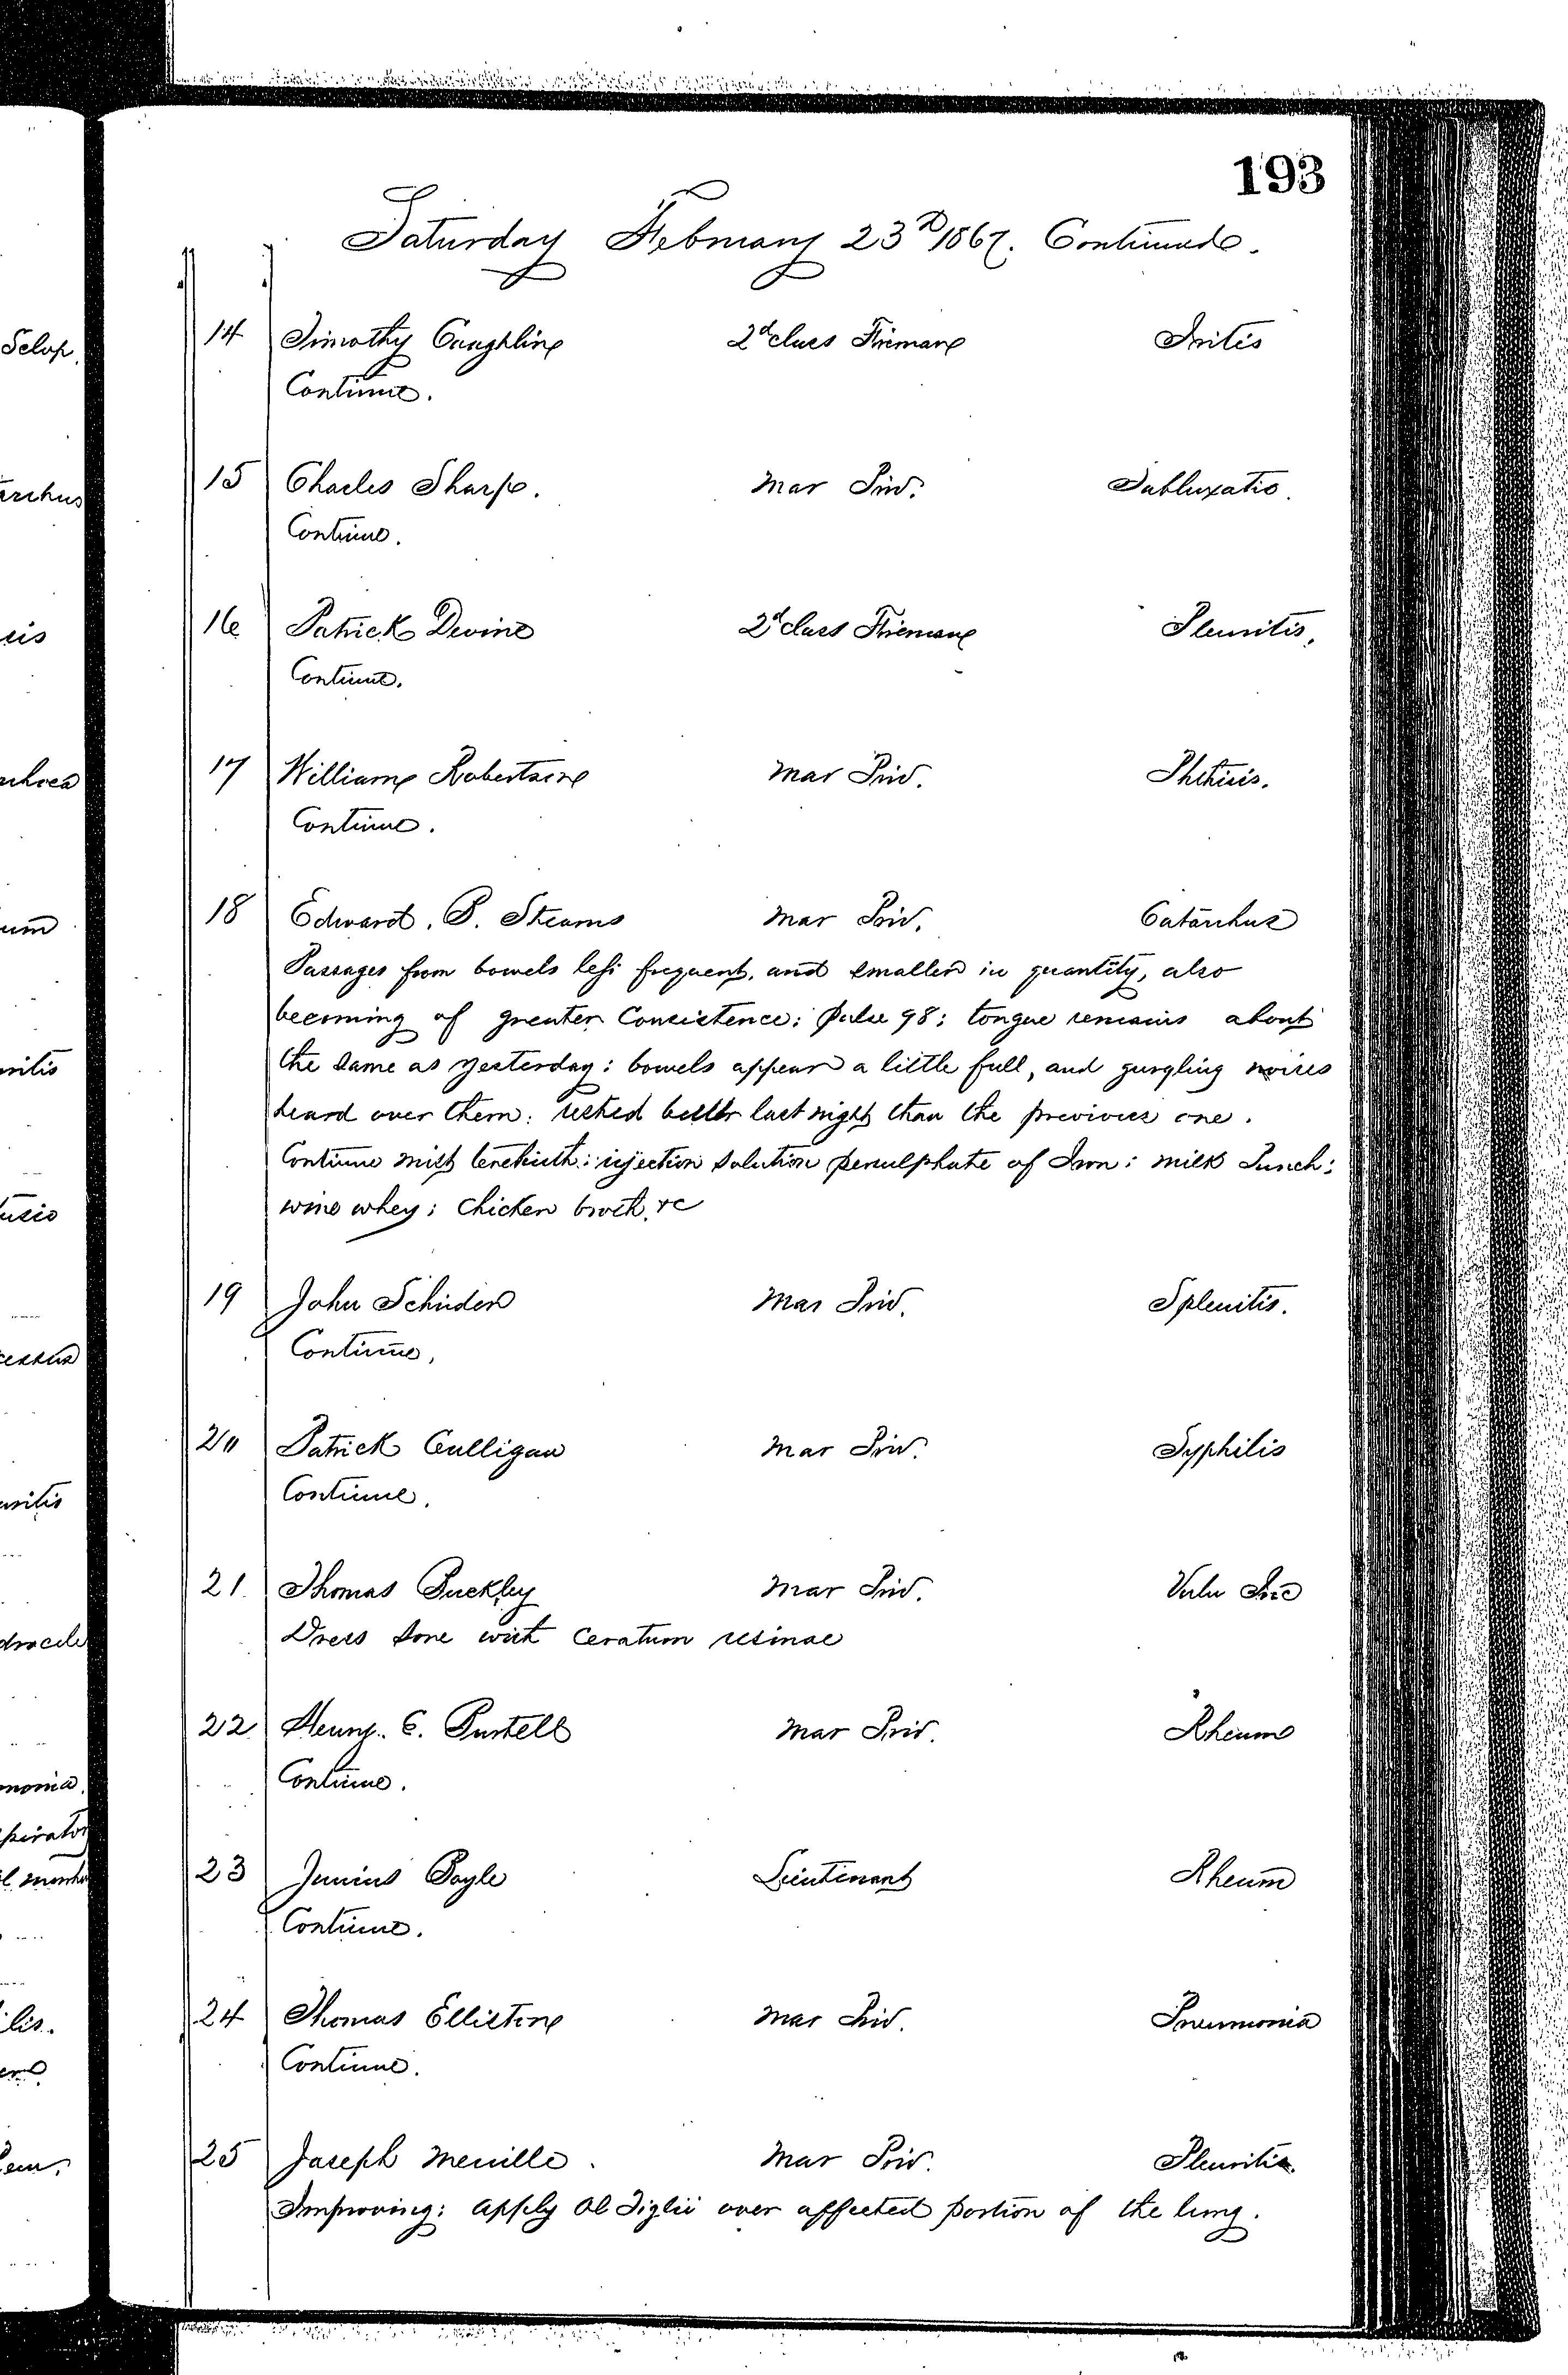 193
Saturday February 23d 1867. Continued.
14 Timothy Coughlin 2d class Fireman Iritis
Continue.
15 Charles Sharp. Mar Priv. Subluxatio.
Continue.
16 Patrick Devine 2d class Fireman Pleuritis.
Continue.
17 William Robertson Mar Priv. Phthisis.
Continue.
18 Edward. P. Stearns Mar Priv. Catarrhus
Passages from bowels less frequent, and smaller in quantity, also
becoming of greater Consistence; Pulse 98; tongue remains about
the same as yesterday: bowels appear a little full, and gurgling noises
heard over them: rested better last night than the previous one.
Continue mist : injection solution persulphate of Iron: Milk Punch:
wine whey; Chicken broth, &c
19 John Schuder Mar Priv. Splenitis.
Continue,
20 Patrick Culligan Mar Priv. Syphilis
Continue.
21 Thomas Buckley Mar Priv. Vuln Inc
Dress sore with Ceratum resinae
22 Henry. C. Purtell Mar Priv. Rheum
Continue.
23 Junius Boyle Lieutenant Rheum
Continue.
24 Thomas Ellistone Mar Priv. Pneumonia
Continue.
25 Joseph Meville. Mar Priv. Pleuritis.
Improving: apply Ol Tiglii over affected portion of the lung.